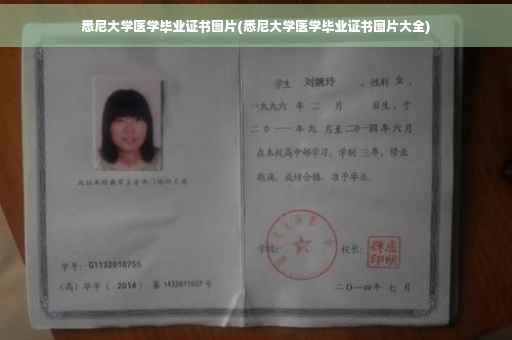 悉尼大学医学毕业证书图片(悉尼大学医学毕业证书图片大全)
学生 刘婉玲 ,性别 女 ,
一九九六 年 二 月 日生,于
二〇一一 年 九 月至 二〇一四 年 六 月
在本校高中部学习,学制 三 年,修业
期满,成绩合格,准予毕业。
学校: 校长:
学号: G1132010755
(高)毕字( 2014 )第 1432011027 号
二〇一四年 七 月